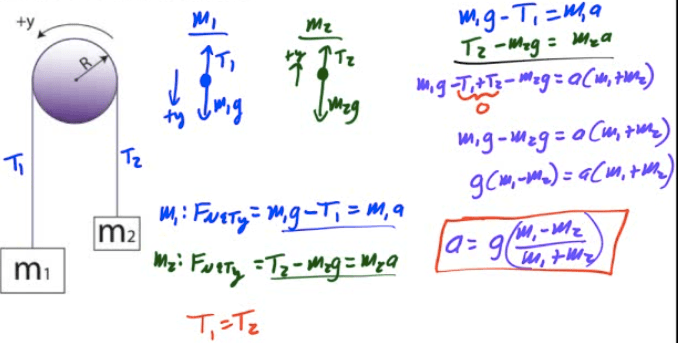 +y
R
T₁
T₂
m₁
m₂
m₁
T₁
+y
m₁g
m₂
+y
T₂
m₂g
m₁: F_NETy = m₁g - T₁ = m₁a
m₂: F_NETy = T₂ - m₂g = m₂a
T₁ = T₂
m₁g - T₁ = m₁a
T₂ - m₂g = m₂a
m₁g - T₁ + T₂ - m₂g = a(m₁+m₂)
0
m₁g - m₂g = a(m₁+m₂)
g(m₁-m₂) = a(m₁+m₂)
a = g((m₁-m₂)/(m₁+m₂))